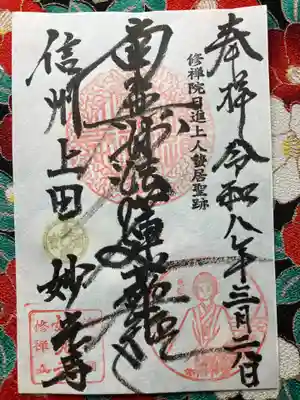 奉拝 令和八年三月二八日
修禅院日進上人蟄居聖跡
南無妙法蓮華経
信州上田 妙光寺